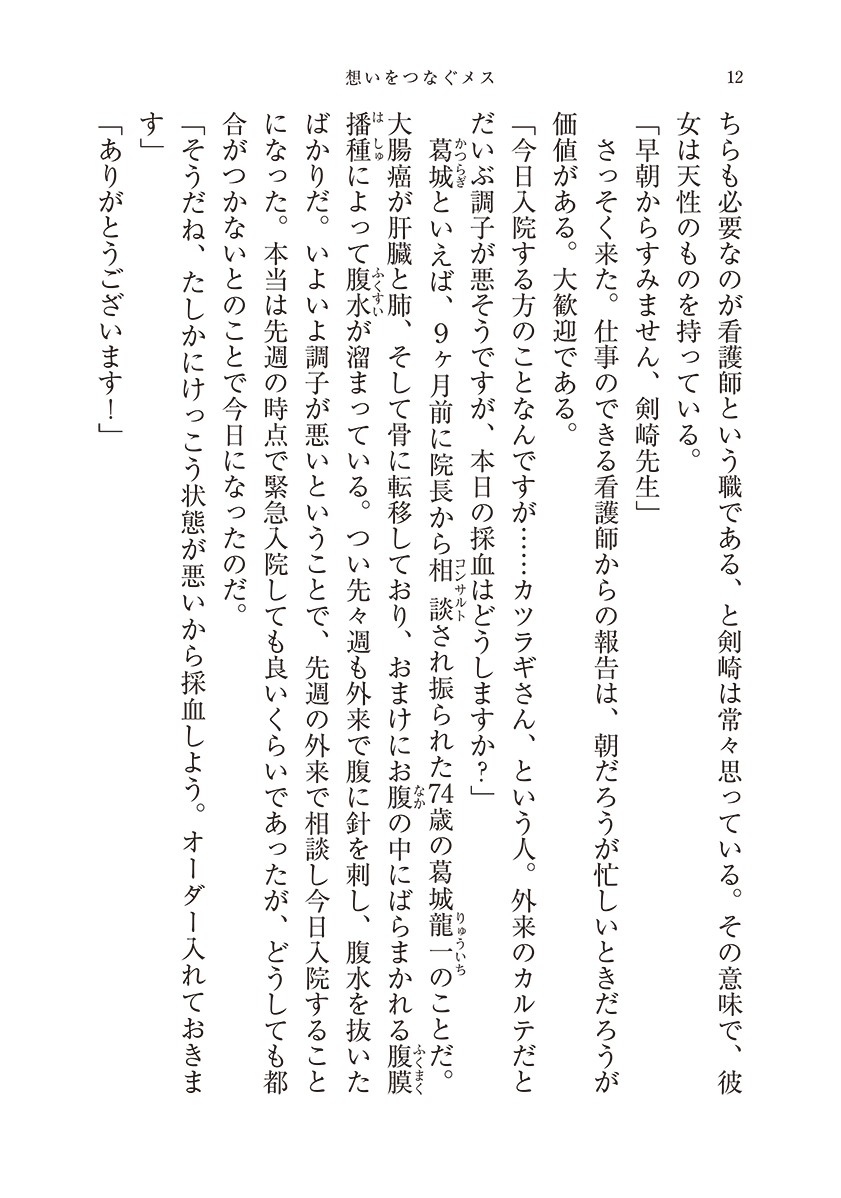 想いをつなぐメス
12
ちらも必要なのが看護師という職である、と剣崎は常々思っている。その意味で、彼
女は天性のものを持っている。
「早朝からすみません、剣崎先生」
さっそく来た。仕事のできる看護師からの報告は、朝だろうが忙しいときだろうが
価値がある。大歓迎である。
「今日入院する方のことなんですが……カツラギさん、という人。外来のカルテだと
だいぶ調子が悪そうですが、本日の採血はどうしますか？」
葛城かつらぎといえば、9ヶ月前に院長から相談コンサルトされ振られた74歳の葛城龍一りゅういちのことだ。
大腸癌が肝臓と肺、そして骨に転移しており、おまけにお腹なかの中にばらまかれる腹膜ふくまく
播種はしゅによって腹水ふくすいが溜まっている。つい先々週も外来で腹に針を刺し、腹水を抜いた
ばかりだ。いよいよ調子が悪いということで、先週の外来で相談し今日入院すること
になった。本当は先週の時点で緊急入院しても良いくらいであったが、どうしても都
合がつかないとのことで今日になったのだ。
「そうだね、たしかにけっこう状態が悪いから採血しよう。オーダー入れておきま
す」
「ありがとうございます！」